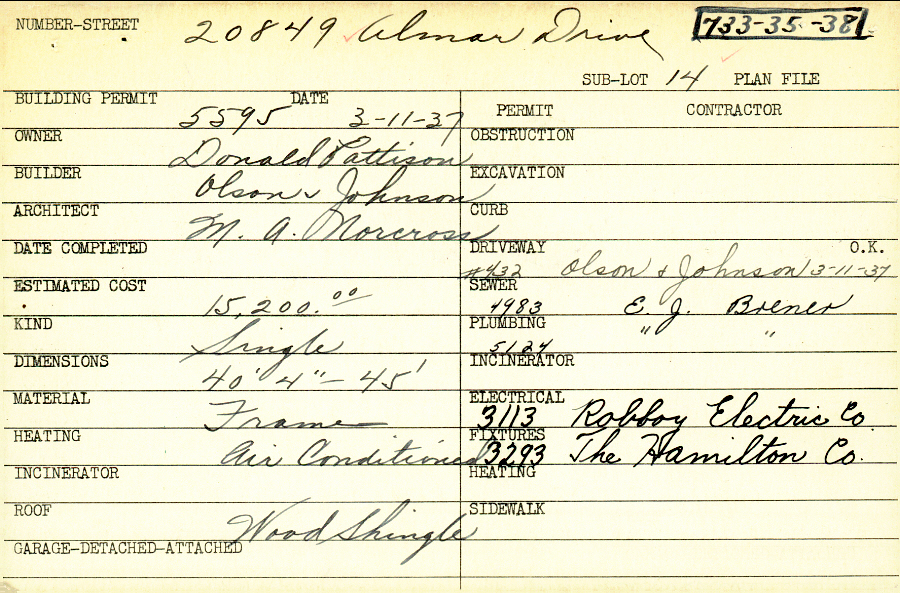 NUMBER-STREET 20849 Almar Drive 733-35-38
SUB-LOT 14 PLAN FILE
BUILDING PERMIT 5595 DATE 3-11-37 PERMIT CONTRACTOR
OWNER Donald Pattison OBSTRUCTION
BUILDER Olson & Johnson EXCAVATION
ARCHITECT M. A. Norcross CURB
DATE COMPLETED DRIVEWAY #432 Olson & Johnson 3-11-37 O.K.
ESTIMATED COST 15,200.00 SEWER 4983 E. J. Brener
KIND Single PLUMBING 5124 " "
DIMENSIONS 40' 4" - 45' INCINERATOR
MATERIAL Frame ELECTRICAL 3113 Robboy Electric Co.
HEATING Air Conditioned FIXTURES 3293 The Hamilton Co.
INCINERATOR HEATING
ROOF Wood Shingle SIDEWALK
GARAGE-DETACHED-ATTACHED